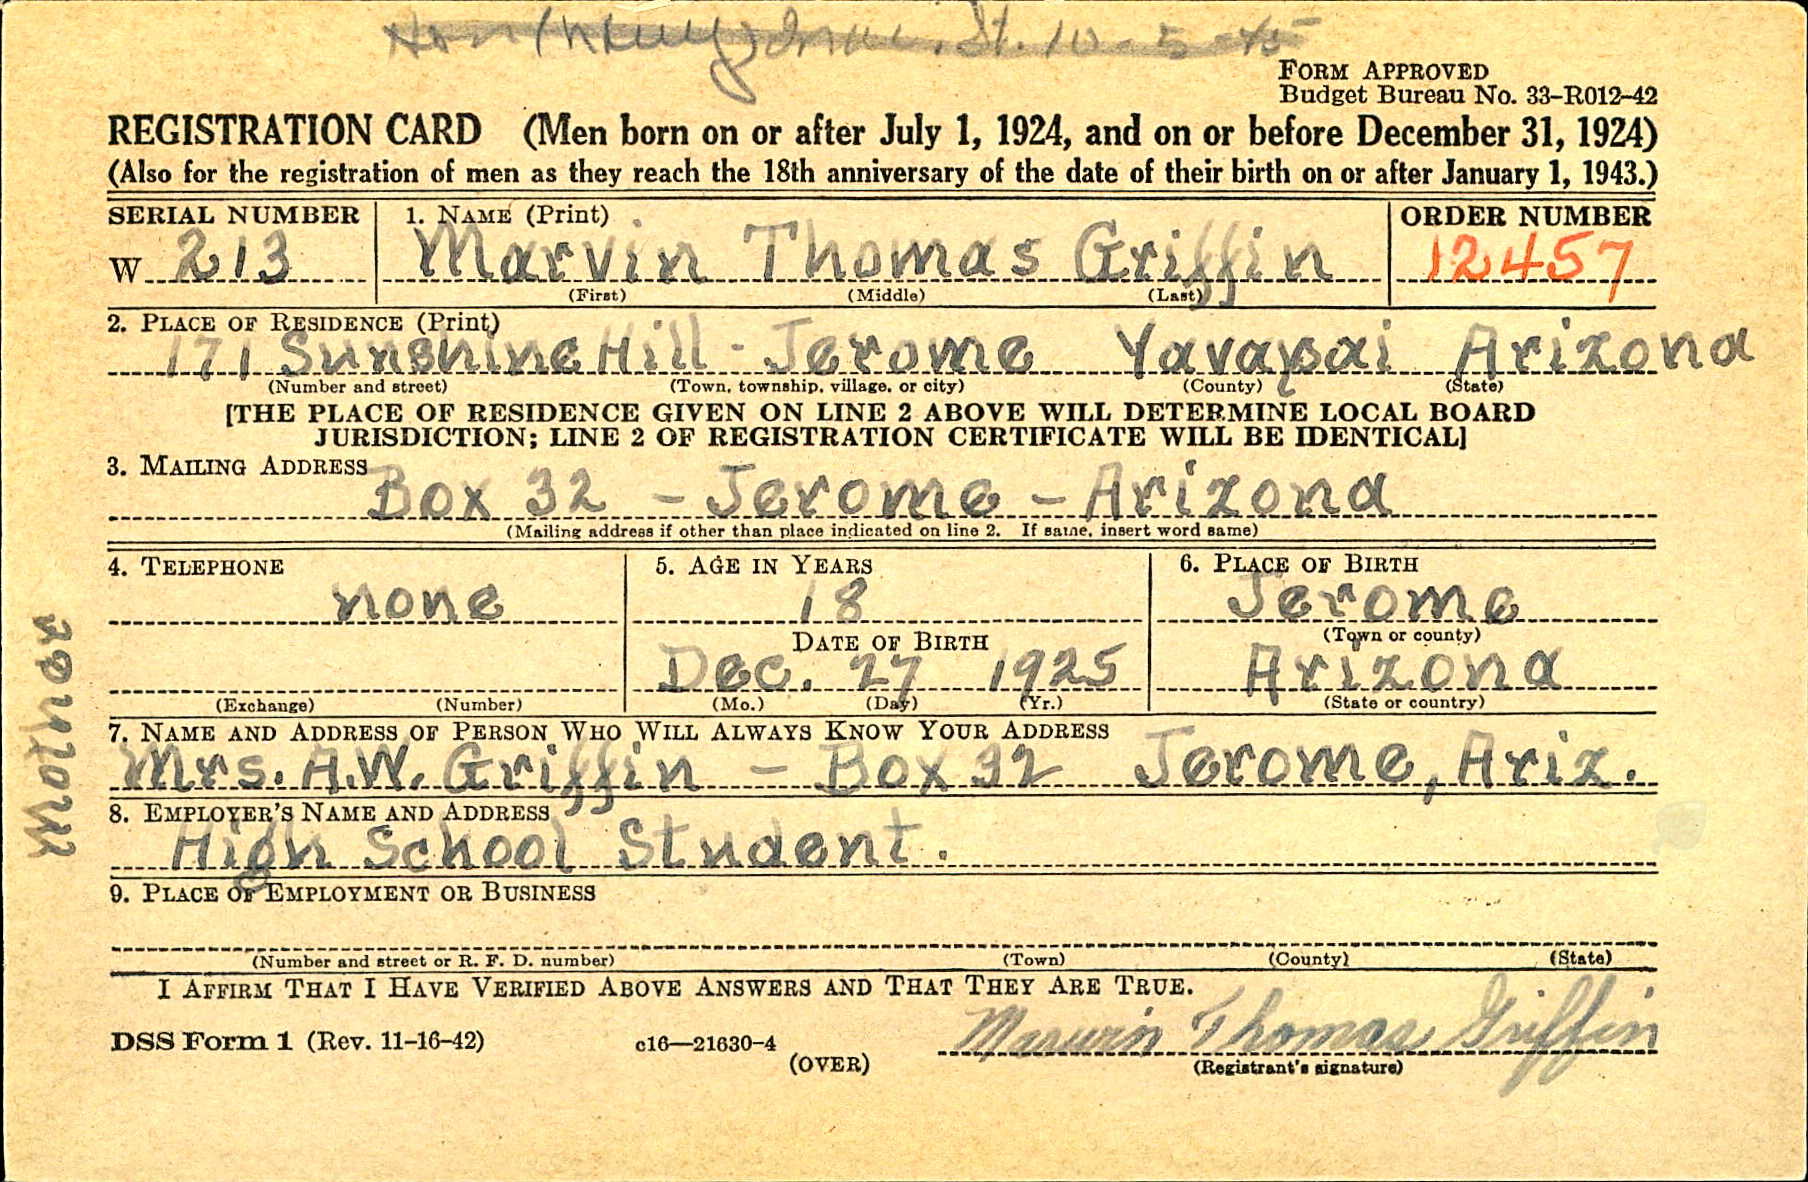 Hon (Navy) St. 10-5-45
FORM APPROVED
Budget Bureau No. 33-R012-42
REGISTRATION CARD (Men born on or after July 1, 1924, and on or before December 31, 1924)
(Also for the registration of men as they reach the 18th anniversary of the date of their birth on or after January 1, 1943.)
SERIAL NUMBER 1. NAME (Print) ORDER NUMBER
W 213 Marvin Thomas Griffin 12457
(First) (Middle) (Last)
2. PLACE OF RESIDENCE (Print)
171 Sunshine Hill - Jerome Yavapai Arizona
(Number and street) (Town, township, village, or city) (County) (State)
[THE PLACE OF RESIDENCE GIVEN ON LINE 2 ABOVE WILL DETERMINE LOCAL BOARD
JURISDICTION; LINE 2 OF REGISTRATION CERTIFICATE WILL BE IDENTICAL]
3. MAILING ADDRESS
Box 32 - Jerome - Arizona
(Mailing address if other than place indicated on line 2. If same, insert word same)
4. TELEPHONE 5. AGE IN YEARS 6. PLACE OF BIRTH
none 18 Jerome
DATE OF BIRTH (Town or county)
Dec. 27 1925 Arizona
(Exchange) (Number) (Mo.) (Day) (Yr.) (State or country)
7. NAME AND ADDRESS OF PERSON WHO WILL ALWAYS KNOW YOUR ADDRESS
Mrs. A.W. Griffin - Box 32 Jerome, Ariz.
Mother
8. EMPLOYER'S NAME AND ADDRESS
High School Student.
9. PLACE OF EMPLOYMENT OR BUSINESS
(Number and street or R. F. D. number) (Town) (County) (State)
I AFFIRM THAT I HAVE VERIFIED ABOVE ANSWERS AND THAT THEY ARE TRUE.
DSS Form 1 (Rev. 11-16-42) c16—21630-4 Marvin Thomas Griffin
(OVER) (Registrant's signature)